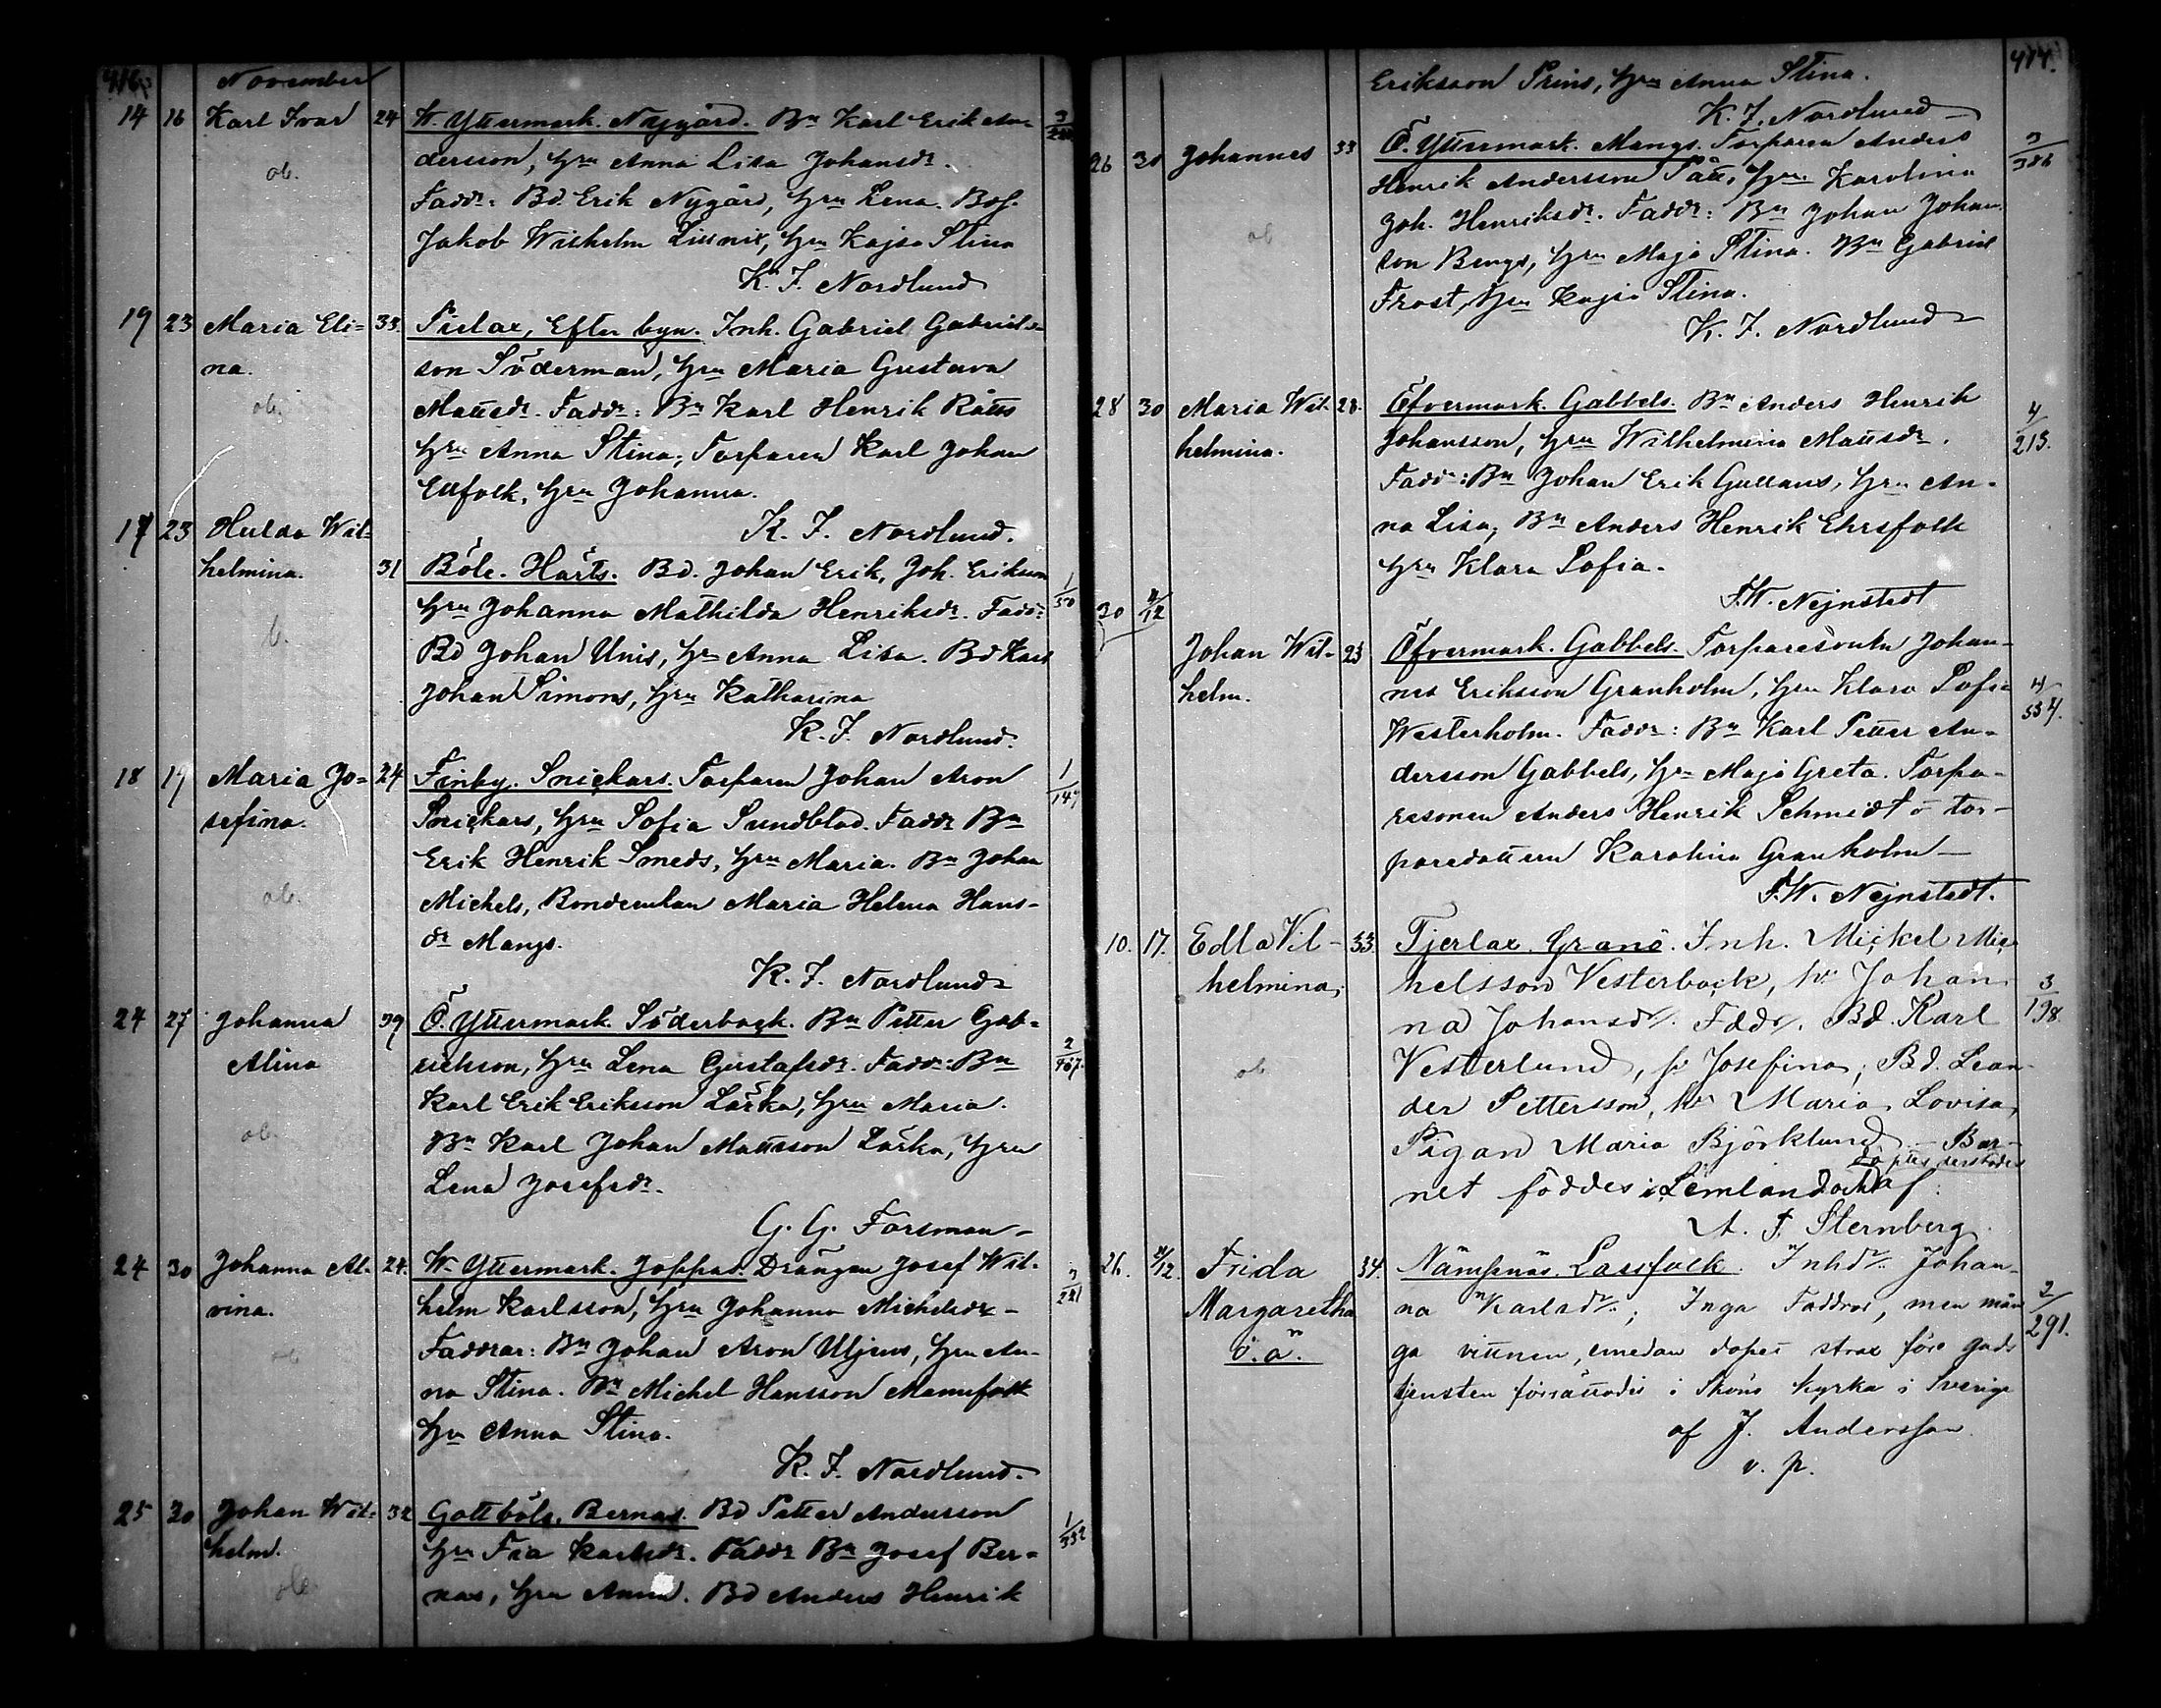 416.
November
14 16 Karl Ivar 24 W. Yttermark. Nygård. Bn Karl Erik An-
dersson, hru Anna Lisa Johansdr.
ob.
Faddr: Bd. Erik Nygård, hru Lena. Bds.
Jakob Wilhelm hru Kajsa Stina
K. F. Nordlund
19 23 Maria Eli= 33. Pielax, Efter byn. Inh. Gabriel Gabriels-
na. son Söderman, hru Maria Gustava
ob. Mattsdr. Faddr: Bn Karl Henrik Rätts
hru Anna Stina; Torparen Karl Johan
Ellfolk, hru Johanna.
K. F. Nordlund.
17 23 Hulda Wil-
helmina. 31 Böle. Härts. Bd. Johan Erik, Joh. Eriksson 1/50
hru Johanna Mathilda Henriksdr. Faddr:
b. Bd Johan Unis, hru Anna Lisa. Bd Karl
Johan Simons, hru Katharina
K. F. Nordlund.
18 19 Maria Jo= 24 Finby. Snickars. Torparen Johan Aron 1/147
sefina. Snickars, hru Sofia Sundblad. Faddr Bn
Erik Henrik Smeds, hru Maria. Bn Johan
ob. Michels, Bondeenkan Maria Helena Hans-
dr Mangs.
K. F. Nordlund
24 27 Johanna 39 Ö. Yttermark. Söderback. Bn Petter Gab-
Alina rielsson, hru Lena Gustafsdr. Faddr: Bn
Karl Erik Eriksson Lärka, hru Maria.
ob. Bn Karl Johan Mattsson Lärka, hru
Lena Josefsdr.
G. G. Forsman
24 30 Johanna Al- 24. W. Yttermark. Joppas. Drängen Josef Wil-
vina. helm Karlsson, hru Johanna Michelsdr -
ob Faddrar: Bn Johan Aron Uljens, hru An-
na Stina. Bn Michel Hansson Mannfolk
hru Anna Stina.
K. F. Nordlund.
25 30 Johan Wil- 32 Gottböle. Bernas. Bd Petter Andersson 1/332
helm. hru Fia Karlsdr. Faddr Bn Josef Ber-
ob nas, hru Anna. Bd Anders Henrik
417.
Eriksson Prins, hru Anna Stina.
K. F. Nordlund
26 30 Johannes 33 Ö. Yttermark. Mangs. Torparen Anders 3/386
Henrik Andersson Pått, hru Karolina
Joh. Henriksdr. Faddr: Bn Johan Johan-
ob son Bengs, hru Maja Stina. Bn Gabriel
Frost, hru Kajsa Stina.
K. F. Nordlund
28 30 Maria Wil- 28. Öfvermark. Gabbels. Bn Anders Henrik 4/213.
helmina. Johansson, hru Wilhelmina Mattsdr.
Faddr: Bn Johan Erik Gullans, hru An-
na Lisa, Bn Anders Henrik Ehrsfolk
hru Klara Sofia.
F. W. Nejnstedt
30 2/12
Johan Wil- 23 Öfvermark. Gabbels. Torparesonen Johan-
helm. nes Eriksson Granholm, hru Klara Sofia 4/554.
Westerholm. Faddr: Bn Karl Petter An-
dersson Gabbels, hru Maja Greta. Torpa-
resonen Anders Henrik Schmidt o tor-
paredottern Karolina Granholm -
F. W. Nejnstedt.
10. 17. Edla Vil- 33. Tjerlax. Granö. Inh. Mickel Mic-
helmina, helsson Vesterback, hu Johan- 3/198.
na Johansdr. Fddr. Bd. Karl
ob Vesterlund, hu Josefina, Bd. Lean-
der Pettersson, hu Maria Lovisa,
Pigan Maria Björklund. - Bar-
döptes derstädes
net föddes i Lemland och af:
A. F. Sternberg.
26. 2/12. Frida 34. Nämpnäs. Lassfolk. Inhdr. Johan-
Margaretha na Karlsdr.; Inga Faddrar, men mån 2/291.
o.ä. ga vittnen, emedan dopet strax före guds
tjensten förrättades i Sköns kyrka i Sverige
af J. Andersson
v. p.